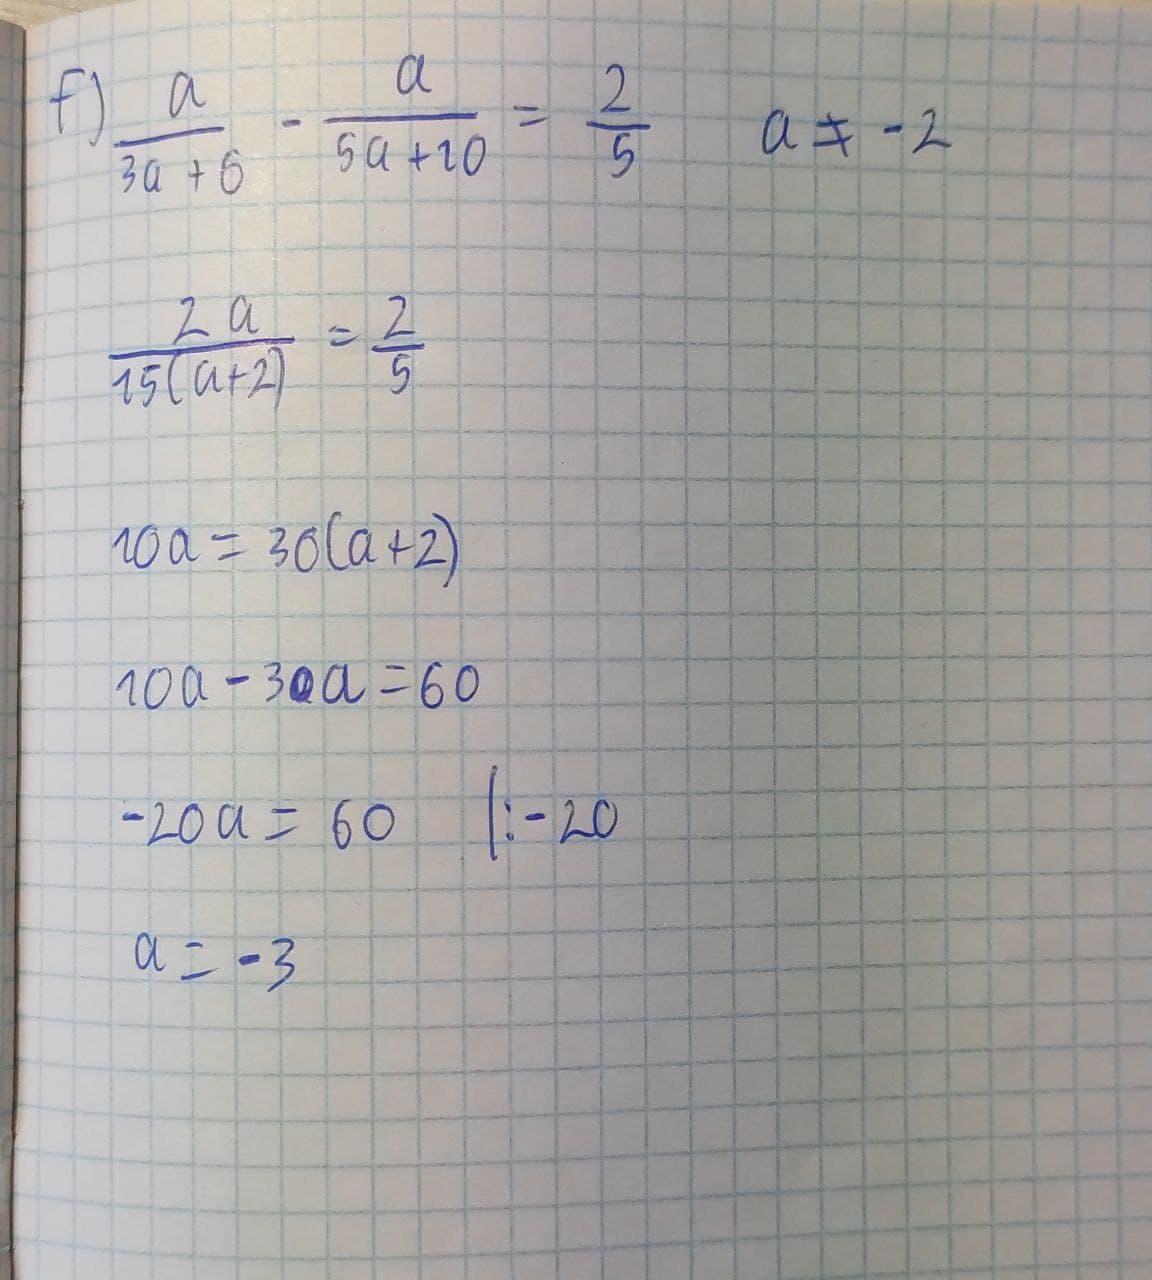 f) a/(3a+6) - a/(5a+10) = 2/5 a ≠ -2
2a/(15(a+2)) = 2/5
10a = 30(a+2)
10a - 30a = 60
-20a = 60 |:-20
a = -3